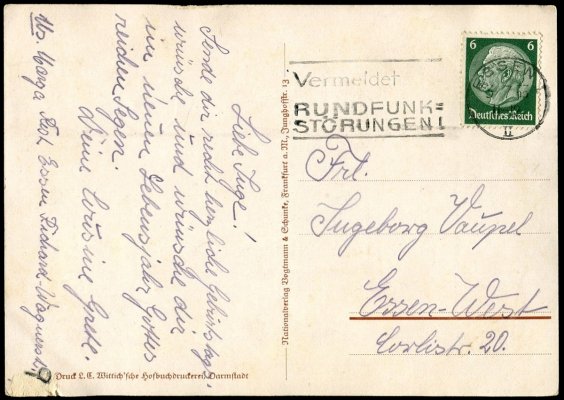 Liebe Inge!
Sende dir recht herzliche Geburtstags-
wünsche und wünsche dir
im neuen Lebensjahr Gottes
reichen Segen.
Deine Cousine Grete.
Essen Richard-Wagnerstr.
Druck L. C. Wittich'sche Hofbuchdruckerei, Darmstadt
Nationalverlag Vogtmann & Schunke, Frankfurt a. M., Junghofstr. 13
Vermeidet
RUNDFUNK-
STÖRUNGEN!
6 6
Deutsches Reich
ESSEN
Frl.
Ingeborg Vaupel
Essen-West
20.